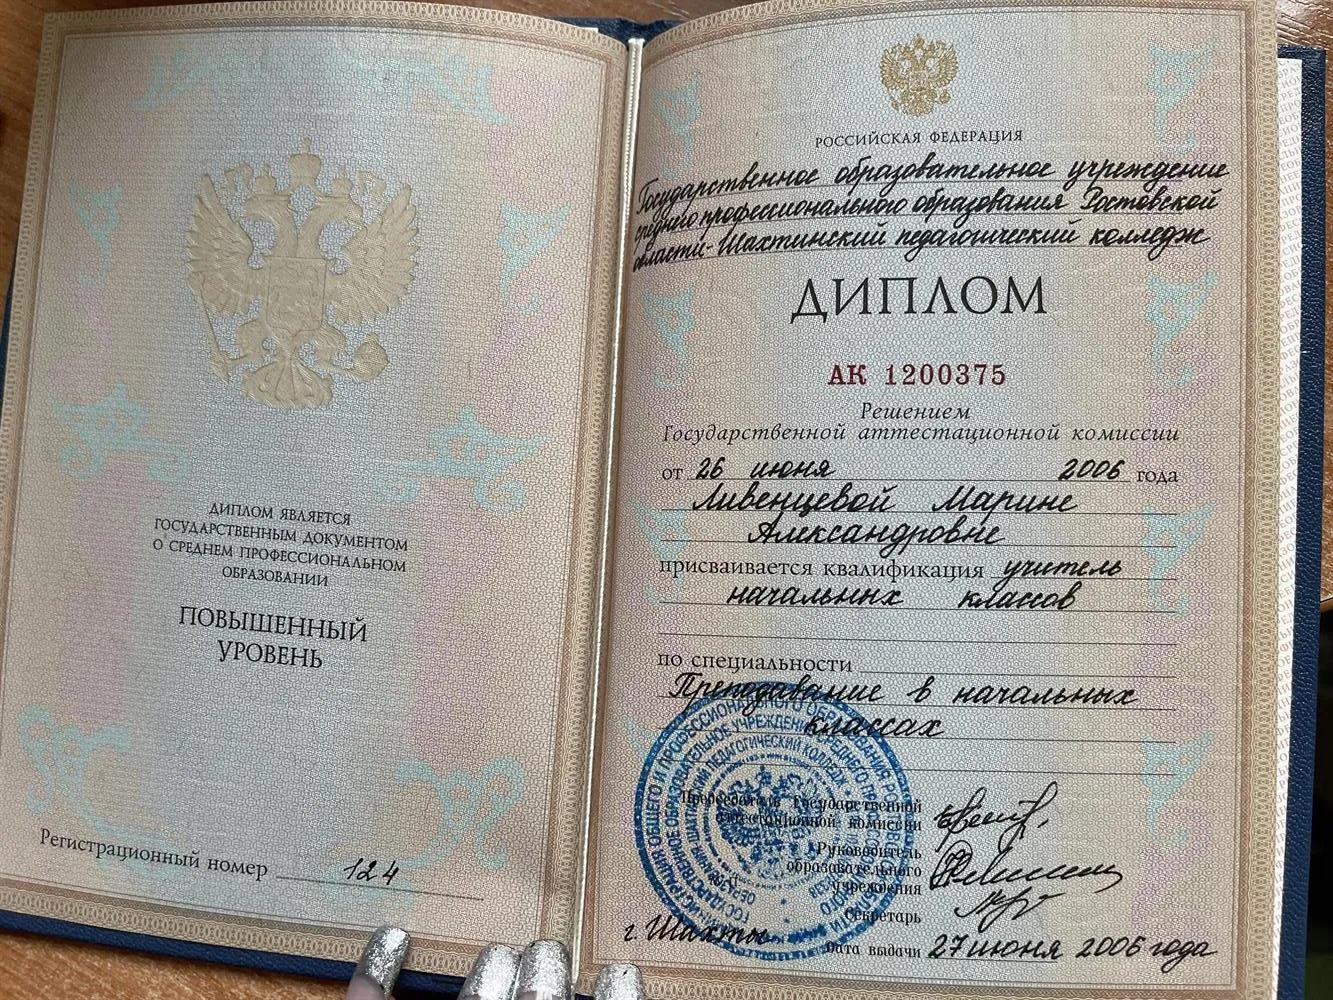 ДИПЛОМ ЯВЛЯЕТСЯ
ГОСУДАРСТВЕННЫМ ДОКУМЕНТОМ
О СРЕДНЕМ ПРОФЕССИОНАЛЬНОМ
ОБРАЗОВАНИИ
ПОВЫШЕННЫЙ
УРОВЕНЬ
Регистрационный номер 124
РОССИЙСКАЯ ФЕДЕРАЦИЯ
Государственное образовательное учреждение
среднего профессионального образования Ростовской
области - Шахтинский педагогический колледж
ДИПЛОМ
АК 1200375
Решением
Государственной аттестационной комиссии
от 26 июня 2006 года
Ливенцевой Марине
Александровне
присваивается квалификация учитель
начальных классов
по специальности
Преподавание в начальных
классах
Председатель Государственной
аттестационной комиссии
Руководитель
образовательного
учреждения
Секретарь
г. Шахты дата выдачи 27 июня 2006 года